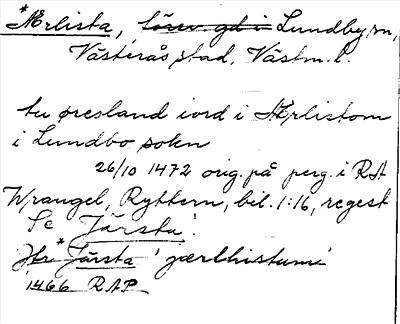 *Ærlista, försv. gd i Lundby sn,
Västerås stad, Västm. l.
tu øresland iord i Ærlistom
i Lundbo sokn
26/10 1472 orig. på perg. i RA
Wrangel, Ryttern, bil. 1:16, regest
Se Järsta!
Jfr *Järsta 'jærlhistumi'
1466 RAP